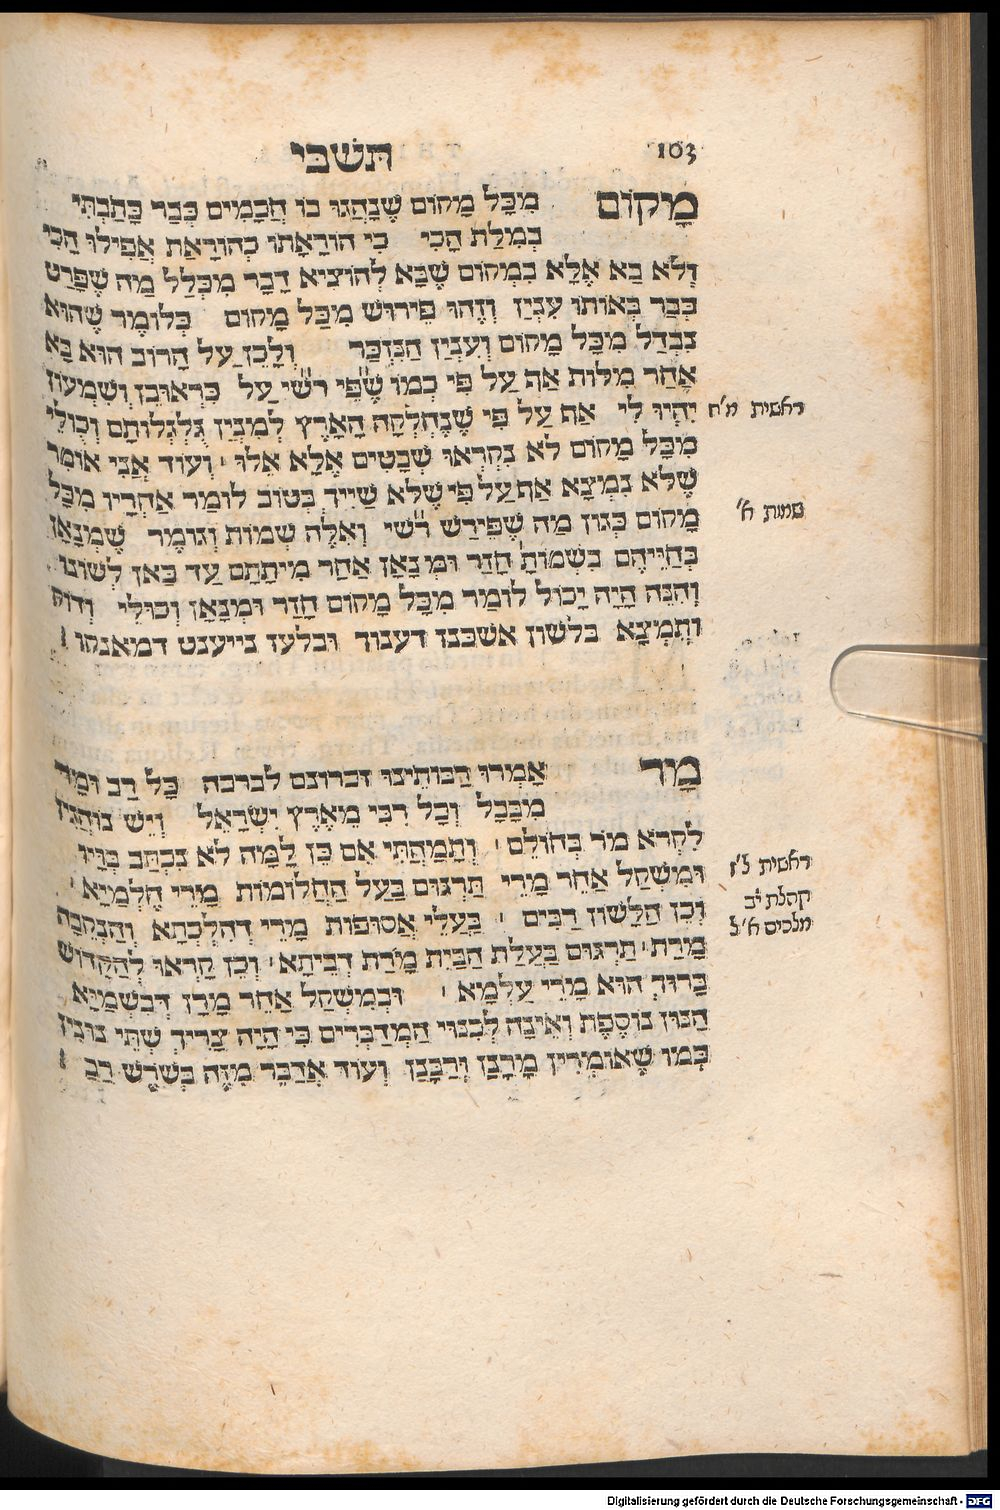 103
תִּשְׁבִּי
מָקוֹם מִכָּל מָקוֹם שֶׁנָּהֲגוּ בוֹ חֲכָמִים כְּבַר כָּתַבְתִּי
בְמִלַּת הָכִי כִּי הוֹרָאָתוֹ כְּהוֹרָאַת אֲפִילוּ הָכִי
וְלֹא בָא אֶלָּא בִמְקוֹם שֶׁבָּא לְהוֹצִיא דָבָר מִכְּלַל מַה שֶּׁפָּרַט
כְּבָר בְּאוֹתוֹ עִנְיָן וְזֶהוּ פֵירוּשׁ מִכָּל מָקוֹם כְּלוֹמַר שֶׁהוּא
נִבְדַּל מִכָּל מָקוֹם וְעִנְיָן הַנִּזְכָּר וְלָכֵן עַל הָרוֹב הוּא בָא
אַחַר מִלּוֹת אַף עַל פִּי כְמוֹ שֶׁפֵּי רשִׁי עַל כִּרְאוּבֵן וְשִׁמְעוֹן
יִהְיוּ לִי אַף עַל פִּי שֶׁנֶּחְלְקָה הָאָרֶץ לְמִנְיַן גֻּלְגְּלוֹתָם וְכוּלֵי
ראשית מ״ח
מִכָּל מָקוֹם לֹא נִקְרְאוּ שְׁבָטִים אֶלָּא אֵלוּ ׳ וְעוֹד אֲנִי אוֹמֵר
שֶׁלֹּא נִמְצָא אַף עַל פִּי שֶׁלֹּא שַׁיָּיךְ בְּטוֹב לוֹמַר אַחֲרָיו מִכָּל
מָקוֹם כְּגוֹן מַה שֶּׁפֵּירַשׁ רשִׁי וְאֵלֶּה שְׁמוֹת וְגוֹמֶר שֶׁמְּנָאָן
שמות א׳
בְּחַיֵּיהֶם בִּשְׁמוֹתָ׳ חָזַר וּמְנָאָן אַחַר מִיתָתָם עַד כָּאן לְשׁוֹנוֹ
וְהִנֵּה הָיָה יָכוֹל לוֹמַר מִכָּל מָקוֹם חָזַר וּמְנָאָן וְכוּלֵי וְדוֹק
וְתִמְצָא בִלְשׁוֹן אשכנז דענוך ובלעז נייענט דמאנקו׃
מָר אָמְרוּ רַבּוֹתֵינוּ זכרונם לברכה כָּל רַב וּמָר
מִבָּבֶל וְכָל רִבִּי מֵאֶרֶץ יִשְׂרָאֵל וְיֵשׁ נוֹהֲגִין
לִקְרֹא מוֹר בְּחוֹלֵם ׳ וְתָמַהְתִּי אִם כֵּן לָמָּה לֹא נִכְתַּב בְּוָיו
וּמִשְׁקַל אַחֵר מָרֵי תַּרְגּוּם בַּעַל הַחֲלוֹמוֹת מָרֵי חֶלְמַיָּא ׳
ראשית ל״ז
וְכֵן הַלָּשׁוֹן רַבִּים ׳ בַּעֲלֵי אֲסוּפוֹת מָרֵי דְהִלְכְתָא וְהַנְּקֵבָה
קהלת יב
מָרַת ׳ תַּרְגּוּם בַּעֲלַת הַבַּיִת מָרַת דְּבֵיתָא ׳ וְכֵן קָרְאוּ לְהַקָּדוֹשׁ
מלכים א׳ ל
בָּרוּךְ הוּא מָרֵי עַלְמָא ׳ וּבְמִשְׁקָל אַחֵר מָרָן דְּבִשְׁמַיָּא
הַנּוּן נוֹסֶפֶת וְאֵינָה לְכִנּוּי הַמְדַבְּרִים כִּי הָיָה צָרִיךְ שְׁתֵּי נוּנִין
כְּמוֹ שֶׁאוֹמְרִין מָרָנָן וְרַבָּנָן וְעוֹד אֲדַבֵּר מִזֶּה בְּשֹׁרֶשׁ רַב׃
Digitalisierung gefördert durch die Deutsche Forschungsgemeinschaft - DFG